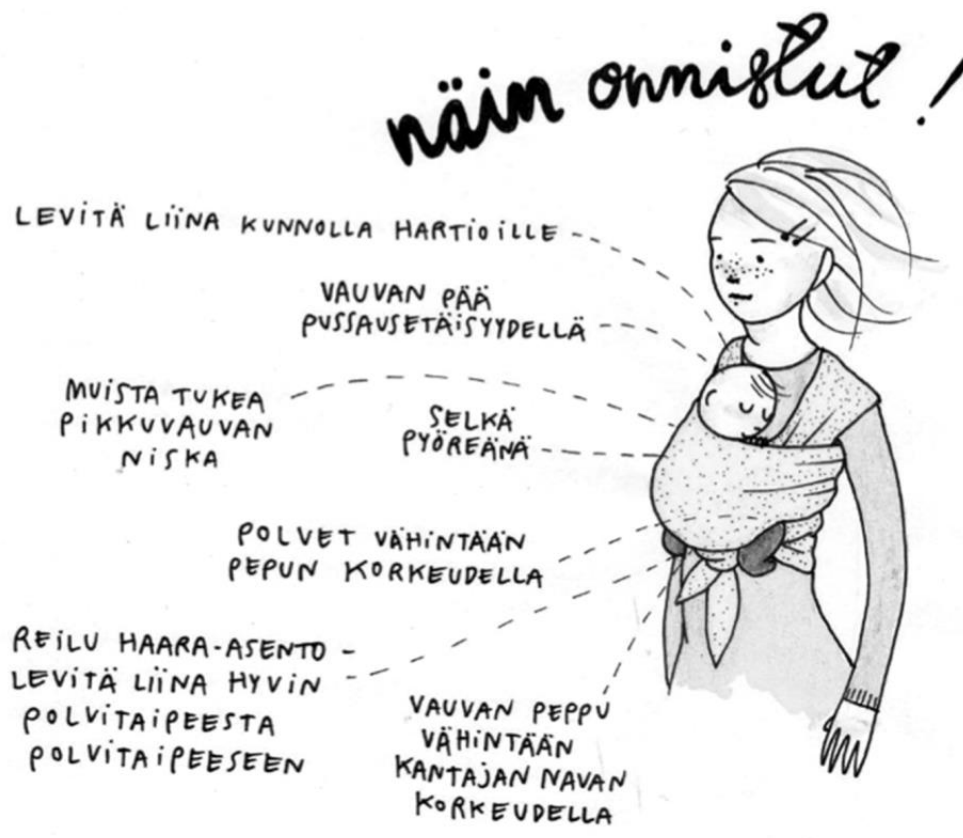 näin onnistut!
LEVITÄ LIINA KUNNOLLA HARTIOILLE
VAUVAN PÄÄ
PUSSAUSETÄISYYDELLÄ
MUISTA TUKEA
PIKKUVAUVAN
NISKA
SELKÄ
PYÖREÄNÄ
POLVET VÄHINTÄÄN
PEPUN KORKEUDELLA
REILU HAARA-ASENTO -
LEVITÄ LIINA HYVIN
POLVITAIPEESTA
POLVITAIPEESEEN
VAUVAN PEPPU
VÄHINTÄÄN
KANTAJAN NAVAN
KORKEUDELLA